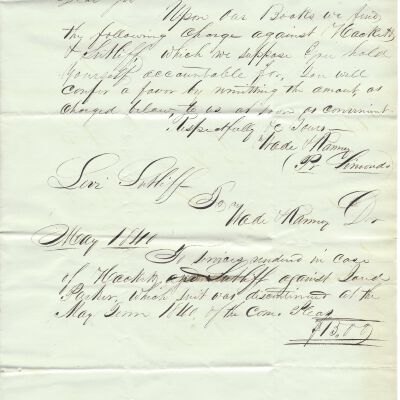 Dear Sir
Upon our Books we find
the following charge against Hackett
& Sutliff, which we suppose you hold
yourself accountable for. You will
confer a favor by remitting the amount as
charged below to us as soon as convenient.
Respectfully &c Yours
Wade & Ranney
Pr Simonds
Levi Sutliff
To Wade & Ranney Dr
May 1840
To services rendered in case
of Hackett and Sutliff against
Parker, which suit was discontinued at the
May Term 1840, of the Com. Pleas